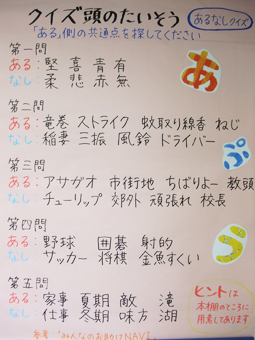 クイズ頭のたいそう
あるなしクイズ
「ある」側の共通点を探してください
第一問
ある：堅 喜 青 有
なし：柔 悲 赤 無
あ
第二問
ある：竜巻 ストライク 蚊取り線香 ねじ
なし：稲妻 三振 風鈴 ドライバー
ぷ
第三問
ある：アサガオ 市街地 ちばりよー 教頭
なし：チューリップ 郊外 頑張れ 校長
第四問
ある：野球 囲碁 射的
なし：サッカー 将棋 金魚すくい
う
第五問
ある：家事 夏期 敵 滝
なし：仕事 冬期 味方 湖
ヒントは
本棚のところに
用意してあります
参考 "みんなのお助けNAVI"